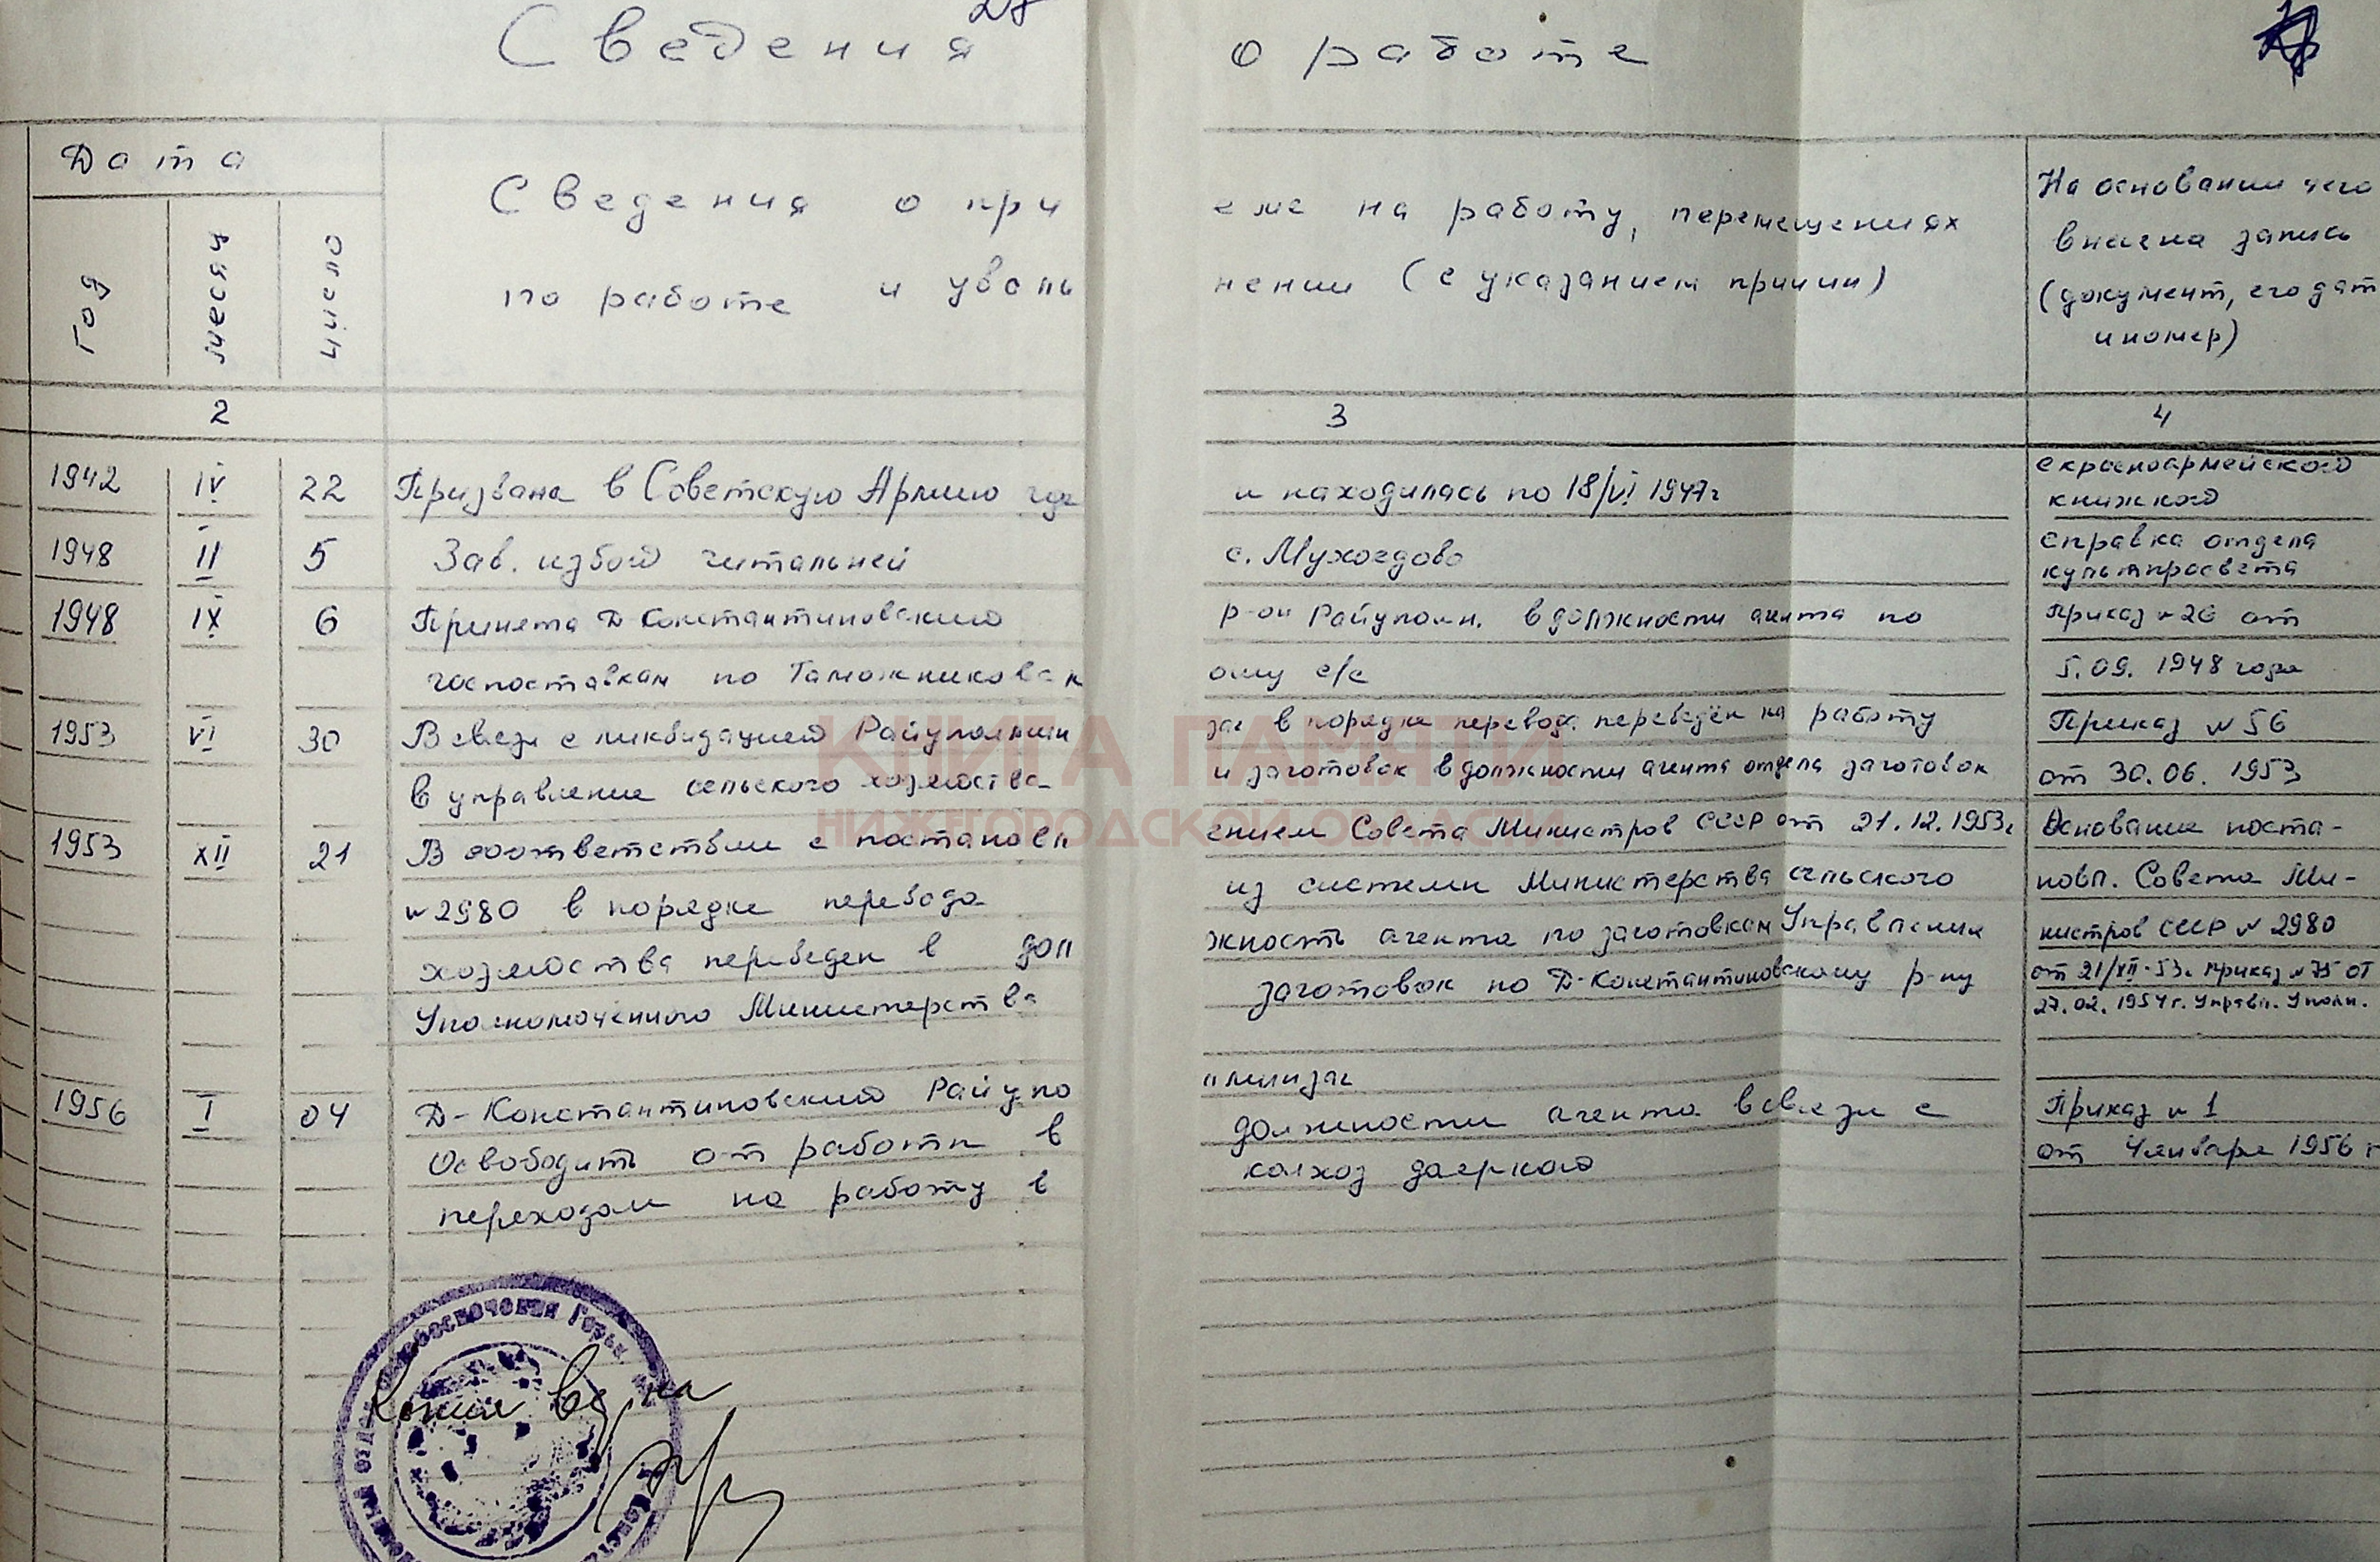 28
Сведения о работе
Дата
Сведения о приеме на работу, перемещениях
по работе и увольнении (с указанием причин)
На основании чего
внесена запись
(документ, его дат
и номер)
год
месяц
число
2 3 4
1942 IV 22 Призвана в Советскую Армию где и находилась по 18/VI 1947г
с красноармейской
книжкой
1948 II 5 Зав. избой читальней с. Мухоедово
справка отдела
культпросвета
1948 IX 6 Принята Д Константиновский р-он Райуполн. в должности агента по Приказ №26 от
госпоставкам по Таможниковскому с/с 5.09. 1948 года
1953 VI 30 В связи с ликвидацией Райуполмин заг в порядке перевод. переведен на работу Приказ №56
в управление сельского хозяйства и заготовок в должности агента отдела заготовок от 30.06. 1953
1953 XII 21 В соответствии с постановлением Совета Министров СССР от 21.12.1953г Основание поста-
№2980 в порядке перевода из системы Министерства сельского новл. Совета Ми-
хозяйства переведен в должность агента по заготовкам Управления нистров СССР №2980
Уполномоченного Министерства заготовок по Д-Константиновскому р-ну от 21/XII-53г. приказ №75 от
27.02.1954г. Управл. Уполн.
1956 I 04 Д-Константиновский Райуполминзаг
Освободить от работы в должности агента в связи с Приказ №1
переходом на работу в колхоз дояркой от 4 января 1956 г
Копия верна
КНИГА ПАМЯТИ
НИЖЕГОРОДСКОЙ ОБЛАСТИ